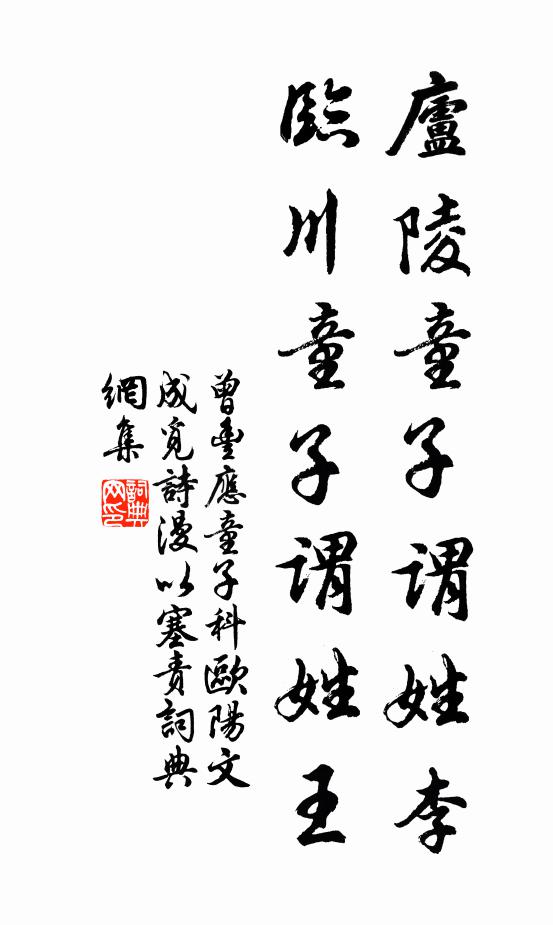 廬陵童子謂姓李
臨川童子謂姓王
曾豐應童子科歐陽文
成覓詩漫以塞責詞典
網集
詞典
网印